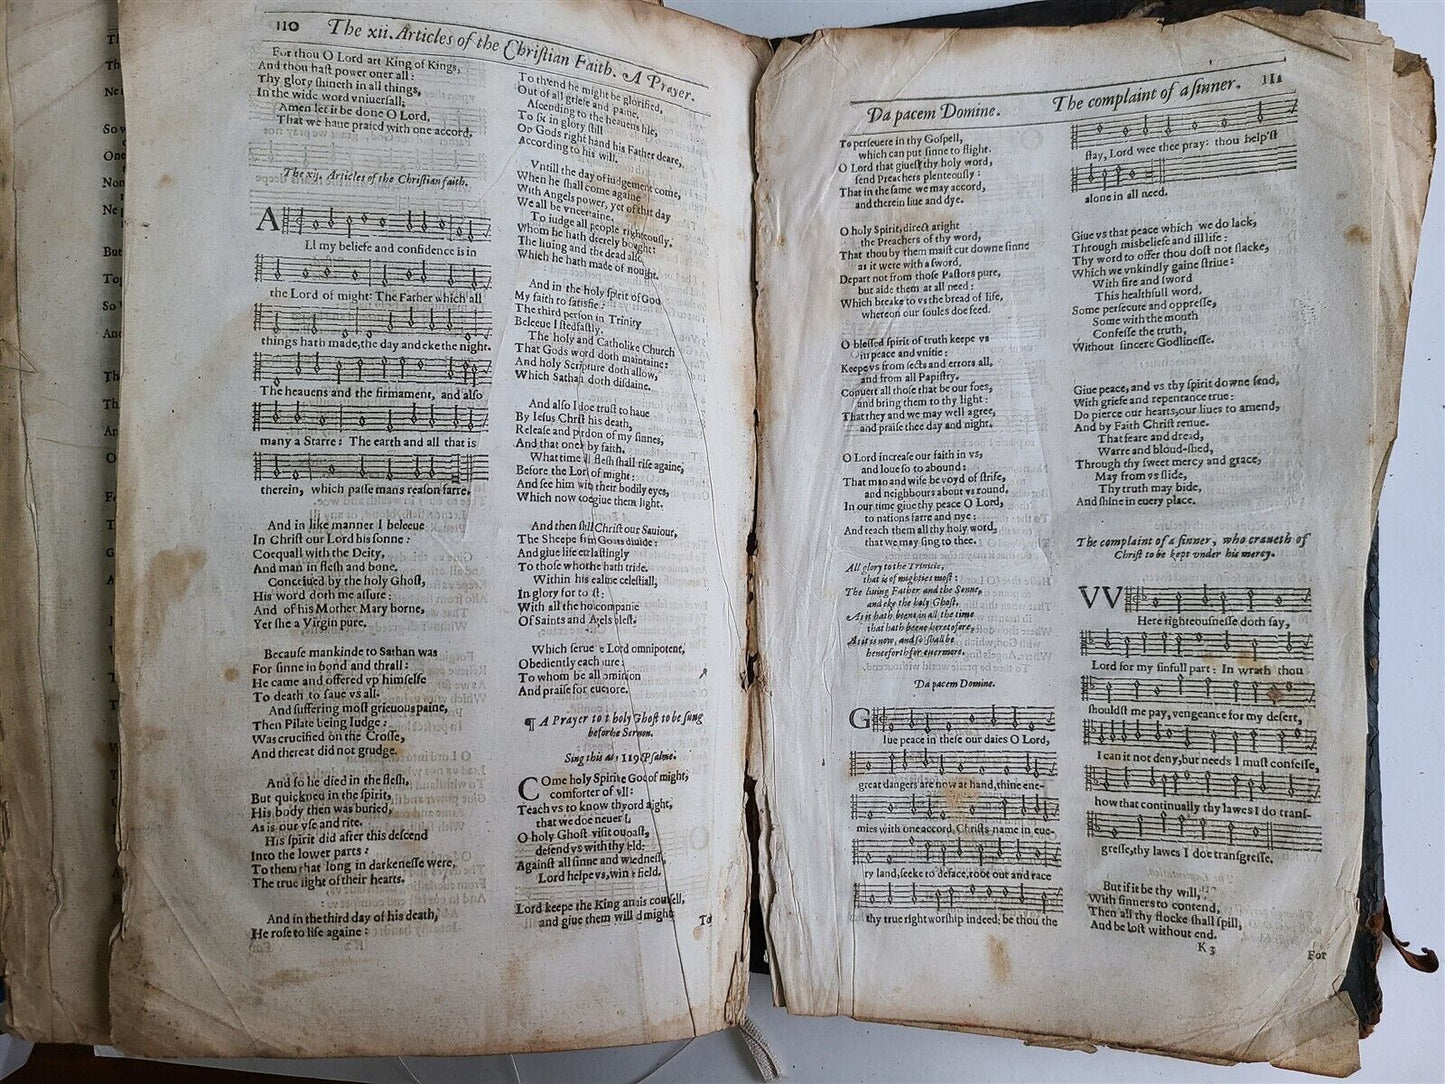 110 The xii. Articles of the Chriſtian Faith. A Prayer.
For thou O Lord art King of Kings,
And thou haſt power ouer all:
Thy glory ſhineth in all things,
In the wide word vniuerſall;
Amen let it be done O Lord,
That we haue praied with one accord.
The xij. Articles of the Chriſtian faith.
ALl my beliefe and confidence is in
the Lord of might: The Father which all
things hath made, the day and eke the night.
The heauens and the firmament, and alſo
many a Starre: The earth and all that is
therein, which paſſe mans reaſon farre.
And in like manner I beleeue
In Chriſt our Lord his ſonne:
Coequall with the Deity,
And man in fleſh and bone.
Conceiued by the holy Ghoſt,
His word doth me aſſure:
And of his Mother Mary borne,
Yet ſhe a Virgin pure.
Becauſe mankinde to Sathan was
For ſinne in bond and thrall:
He came and offered vp himſelfe
To death to ſaue vs all.
And ſuffering moſt grieuous paine,
Then Pilate being Iudge:
Was crucified on the Croſſe,
And thereat did not grudge.
And ſo he died in the fleſh,
But quickned in the ſpirit,
His body then was buried,
As is our vſe and rite.
His ſpirit did after this deſcend
Into the lower parts:
To them that long in darkeneſſe were,
The true light of their hearts.
And in the third day of his death,
He roſe to life againe:
To th'end he might be glorified,
Out of all griefe and paine.
Aſcending to the heauens hie,
To ſit in glory ſtill
On Gods right hand his Father deare,
According to his will.
Vntill the day of iudgement come,
When he ſhall come againe
With Angels power, yet of that day
We all be vncertaine.
To iudge all people righteouſly,
Whom he hath deerely bought:
The liuing and the dead alſo,
Which he hath made of nought.
And in the holy ſpirit of God
My faith to ſatisfie:
The third perſon in Trinity
Beleeue I ſtedfaſtly.
The holy and Catholike Church
That Gods word doth maintaine:
And holy Scripture doth allow,
Which Sathan doth diſdaine.
And alſo I doe truſt to haue
By Ieſus Chriſt his death,
Releaſe and pardon of my ſinnes,
And that onely by faith.
What time all fleſh ſhall riſe againe,
Before the Lord of might:
And ſee him with their bodily eyes,
Which now doe giue them light.
And then ſhall Chriſt our Sauiour,
The Sheepe from Goats diuide:
And giue life euerlaſtingly
To thoſe whom he hath tride.
Within his realme celeſtiall,
In glory for to reſt:
With all the holy companie
Of Saints and Angels bleſt.
Which ſerue the Lord omnipotent,
Obediently each houre:
To whom be all dominion
And praiſe for euermore.
¶ A Prayer to the holy Ghoſt to be ſung
before the Sermon.
Sing this as the 119 Pſalme.
COme holy Spirit the God of might,
comforter of vs all:
Teach vs to know thy word aright,
that we doe neuer fall.
O holy Ghoſt viſit our coaſt,
defend vs with thy ſhield:
Againſt all ſinne and wickedneſſe,
Lord helpe vs win the field.
Lord keepe the King and his counſell,
and giue them will and might
To
Da pacem Domine. The complaint of a ſinner. 111
To perſeuere in thy Goſpell,
which can put ſinne to flight.
O Lord that giueſt thy holy word,
ſend Preachers plenteouſly:
That in the ſame we may accord,
and therein liue and dye.
O holy Spirit, direct aright
the Preachers of thy word,
That thou by them maiſt cut downe ſinne
as it were with a ſword.
Depart not from thoſe Paſtors pure,
but aide them at all need:
Which breake to vs the bread of life,
whereon our ſoules doe feed.
O bleſſed ſpirit of truth keepe vs
in peace and vnitie:
Keepe vs from ſects and errors all,
and from all Papiſtry.
Conuert all thoſe that be our foes,
and bring them to thy light:
That they and we may well agree,
and praiſe thee day and night.
O Lord increaſe our faith in vs,
and loue ſo to abound:
That man and wife be voyd of ſtrife,
and neighbours about vs round,
In our time giue thy peace O Lord,
to nations farre and nye:
And teach them all thy holy word,
that we may ſing to thee.
All glory to the Trinitie,
that is of mighties moſt:
The liuing Father and the Sonne,
and eke the holy Ghoſt.
As it hath beene in all the time
that hath beene heretofore,
As it is now, and ſo ſhall be
henceforth for euermore.
Da pacem Domine.
GIue peace in theſe our daies O Lord,
great dangers are now at hand, thine ene-
mies with one accord, Chriſts name in eue-
ry land, ſeeke to deface, root out and race
thy true right worſhip indeed: be thou the
ſtay, Lord wee thee pray: thou help'ſt
alone in all need.
Giue vs that peace which we do lack,
Through misbeliefe and ill life:
Thy word to offer thou doſt not ſlacke,
Which we vnkindly gaine ſtriue:
With fire and ſword
This healthfull word,
Some perſecute and oppreſſe,
Some with the mouth
Confeſſe the truth,
Without ſincere Godlineſſe.
Giue peace, and vs thy ſpirit downe ſend,
With griefe and repentance true:
Do pierce our hearts, our liues to amend,
And by Faith Chriſt renue.
That feare and dread,
Warre and bloud-ſhed,
Through thy ſweet mercy and grace,
May from vs ſlide,
Thy truth may bide,
And ſhine in euery place.
The complaint of a ſinner, who craueth of
Chriſt to be kept vnder his mercy.
VVHere righteouſneſſe doth ſay,
Lord for my ſinfull part: In wrath thou
ſhouldſt me pay, vengeance for my deſert,
I can it not deny, but needs I muſt confeſſe,
how that continually thy lawes I do tranſ-
greſſe, thy lawes I doe tranſgreſſe.
But if it be thy will,
With ſinners to contend,
Then all thy flocke ſhall ſpill,
And be loſt without end.
K 3
For